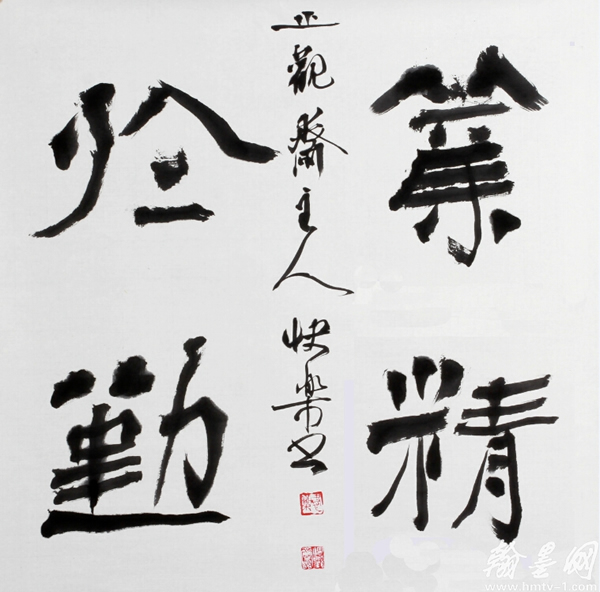 業精
正觀齋主人 快樂书
於勤
翰墨网
www.hmtv-1.com